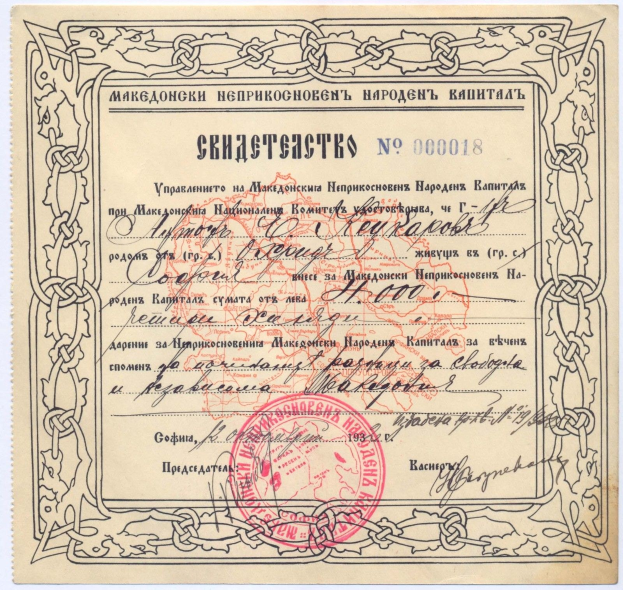 МАКЕДОНСКИ НЕПРИКОСНОВЕНЪ НАРОДЕНЪ КАПИТАЛЪ
СВИДЕТЕЛСТВО № 000018
Управлението на Македонския Неприкосновенъ Народенъ Капиталъ
при Македонския Националенъ Комитетъ удостовѣрява, че Г-
Антонъ Кецкаровъ
родомъ отъ (гр. х.) Охридъ живущъ въ (гр. с.)
София внесе за Македонски Неприкосновенъ На-
роденъ Капиталъ сумата отъ лева 4.000.-
четири хиляди
дарение за Неприкосновения Македонски Народенъ Капиталъ за вѣченъ
споменъ за борци за свободна
и независима Македония
София, 12 октомврий 193 г.
Председатель: Касиеръ:
МАКЕДОНСКИ НЕПРИКОСНОВЕНЪ НАРОДЕНЪ КАПИТАЛЪ
СОФИЯ